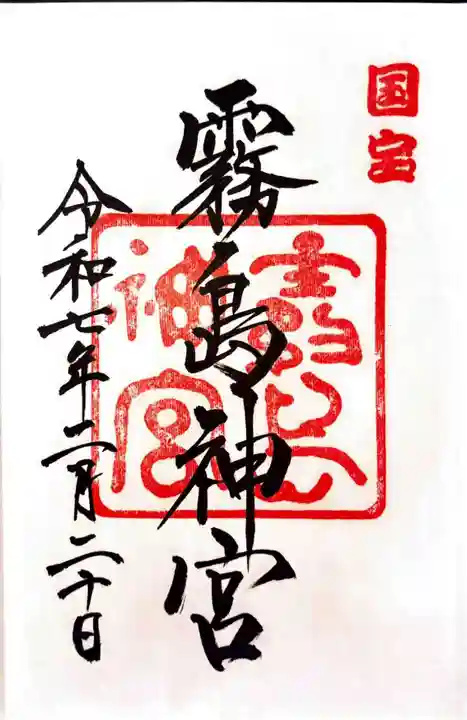 国宝
霧島神宮
霧島
神宮
令和七年二月二十日